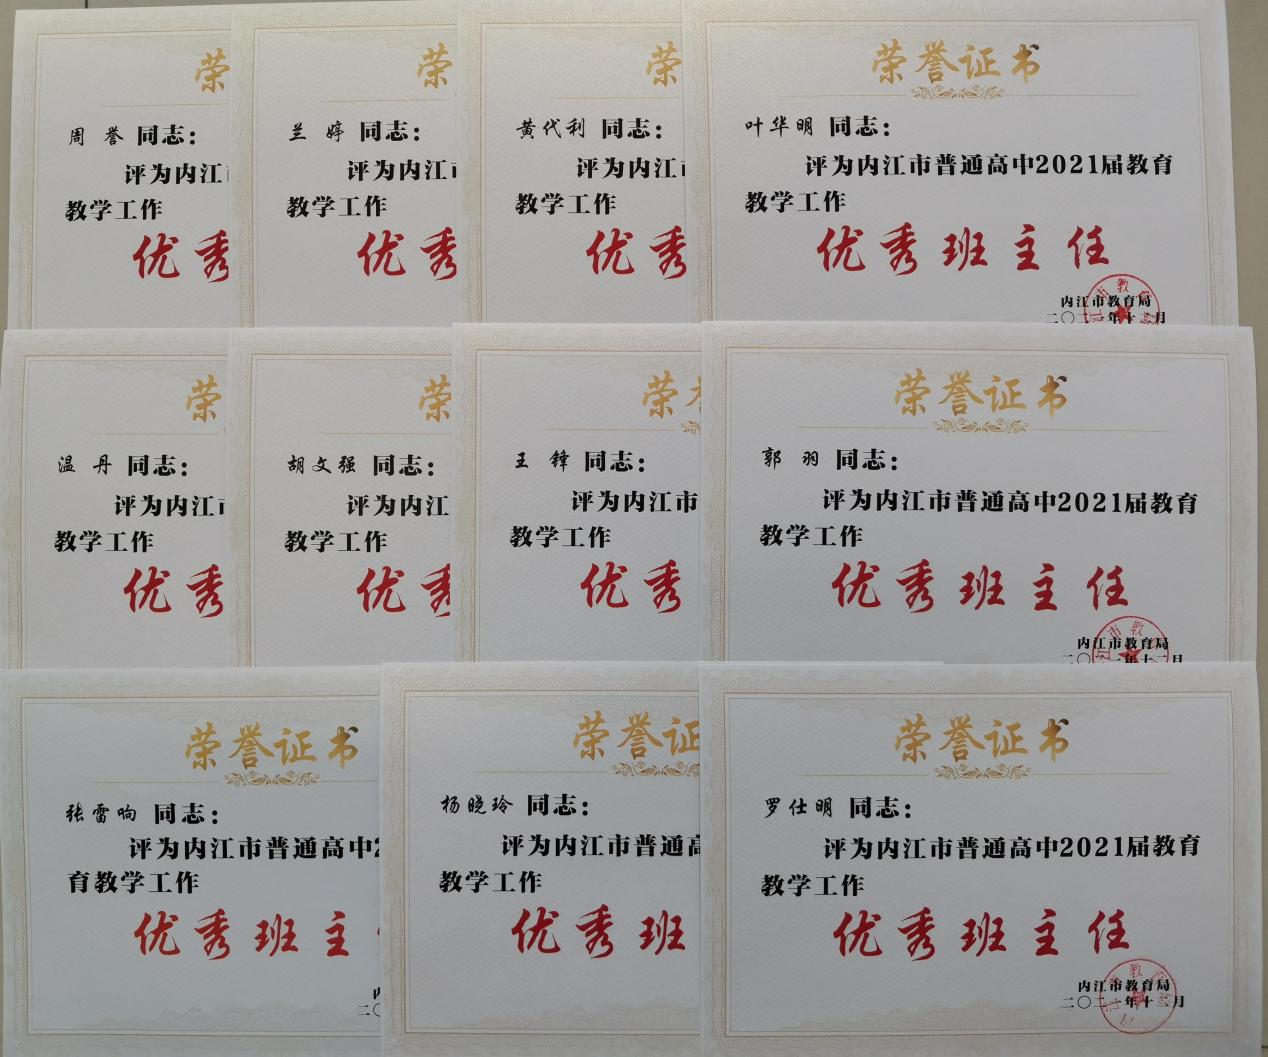 荣
周 誉 同志：
评为内江
教学工作
优秀
荣
兰 婷 同志：
评为内江
教学工作
优秀
荣
黄代利 同志：
评为内江
教学工作
优秀
荣誉证书
叶华明 同志：
评为内江市普通高中2021届教育
教学工作
优秀班主任
内江市教育局
二〇二一年十二月
荣
温 丹 同志：
评为内江
教学工作
优秀
荣
胡文强 同志：
评为内江
教学工作
优秀
荣
王 锋 同志：
评为内江市
教学工作
优秀
荣誉证书
郭 羽 同志：
评为内江市普通高中2021届教育
教学工作
优秀班主任
内江市教育局
二〇二一年十二月
荣誉证书
张雷响 同志：
评为内江市普通高中2
育教学工作
优秀班主
内
二〇
荣誉证
杨晓玲 同志：
评为内江市普通高
教学工作
优秀班
荣誉证书
罗仕明 同志：
评为内江市普通高中2021届教育
教学工作
优秀班主任
内江市教育局
二〇二一年十二月